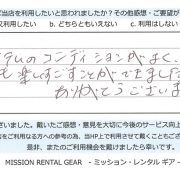 当店を利用したいと思われましたか？その他感想・ご要望が
利用したい b. どちらともいえない c. 利用はしない
テムのコンディションがよく、
も楽しすごすことができました
がとうございま
ざいました。戴いたご感想・意見を大切に今後のサービス向上
をご利用になる方への参考の為、当HPで利用させて戴くこともござ
是非、またのご利用機会を戴けましたら幸いです。
MISSION RENTAL GEAR - ミッション・レンタル ギア -